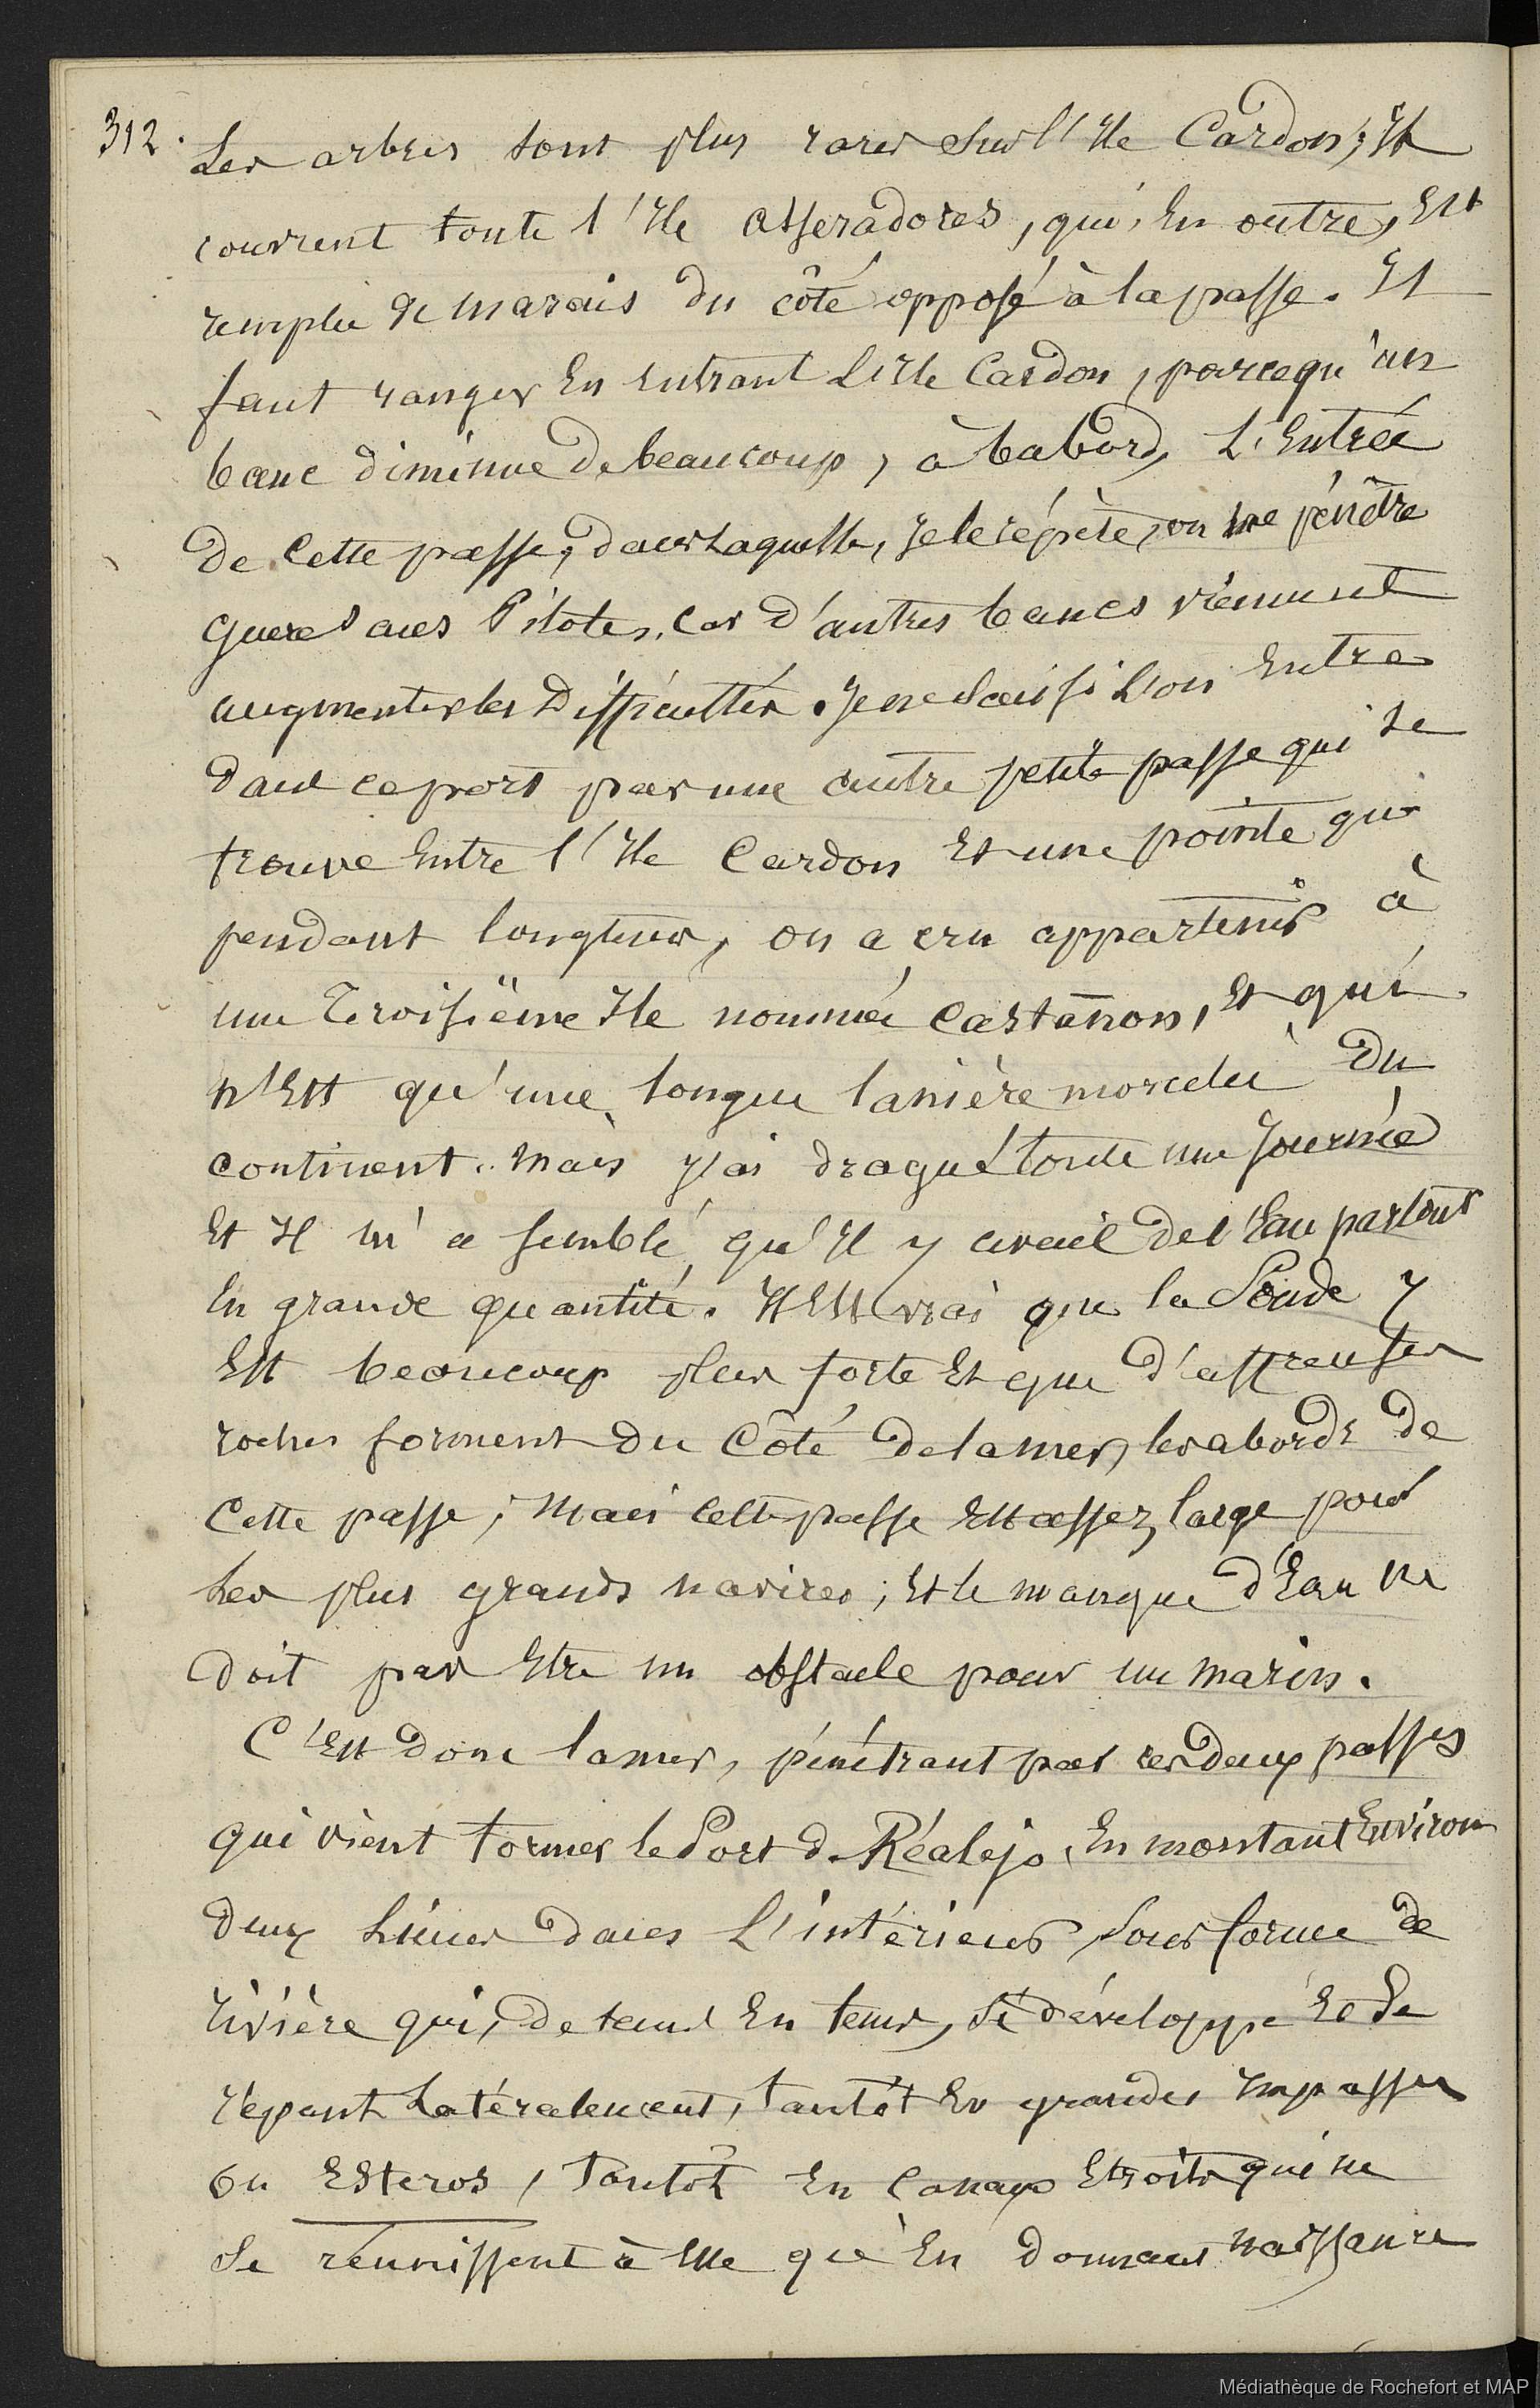 312.
Les arbres sont plus rares sur l'Ile Cardon; Ils
couvrent toute l'Ile Asseradores, qui, En outre, Est
remplie de marais du côté opposé à la passe. Il
faut ranger En Entrant L'Ile Cardon, parcequ'un
banc diminue de beaucoup, à babord, L'Entrée
de cette passe, dans Laquelle, Je le répète, on ne pénètre
guere sans Pilotes. Car d'autres bancs viennent
augmenter les Difficultés. Je ne sais si L'on Entre
dans ce port par une autre petite passe qui se
trouve Entre l'Ile Cardon Et une pointe qui
pendant longtems, on a cru appartenir à
une Troisième Ile nommée Castañon, Et qui
n'Est qu'une longue lanière morcelée Du
continent. Mais J'ai dragué toute une Journée
Et Il m'a semblé qu'Il y avait de l'Eau partout
En grande quantité. Il Est vrai que la Sonde y
Est beaucoup plus forte Et que d'affreuses
roches forment du Côté de la mer, les abords de
Cette passe; Mais cette passe Est assez large pour
Les plus grands navires; Et le manque d'Eau ne
doit pas Etre un obstacle pour un marin.
C'Est donc la mer, pénétrant par ces deux passes
qui vient former le Port de Réalejo, En montant Environ
deux Lieues dans L'intérieur, sous forme de
rivière qui, de tems En tems, se développe Et se
répant Latéralement, tantôt En grandes Impasses
ou Esteros, Tantôt En Canaux Etroits qui ne
se réunissent à Elle qu'En donnant naissance
Médiathèque de Rochefort et MAP